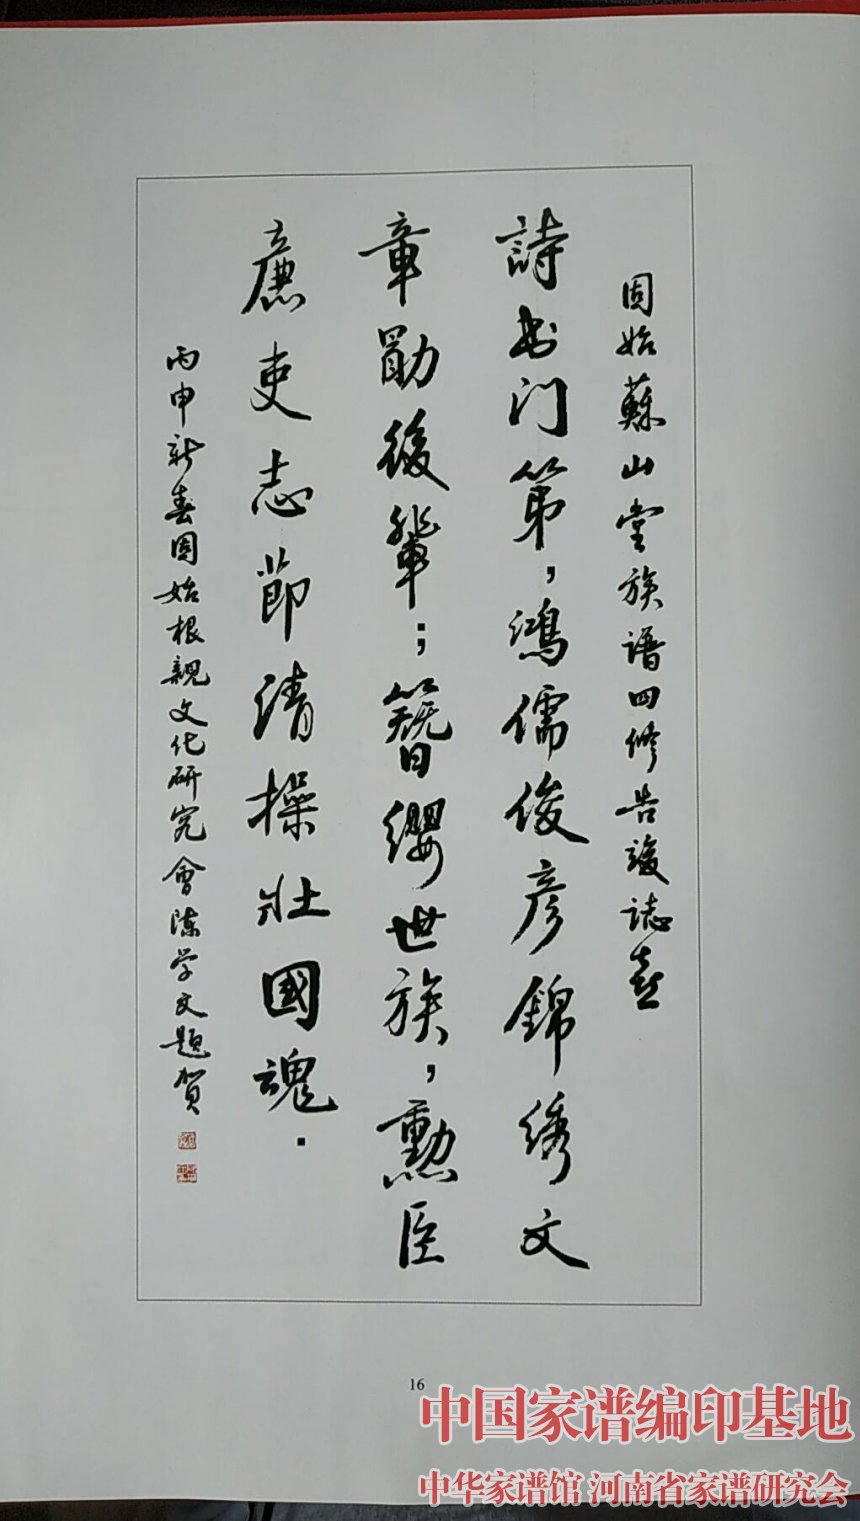 固始蘇山堂族譜四修告竣誌喜
詩书门第，鴻儒俊彦錦绣文
章勖後輩；簪纓世族，勲臣
廉吏志節清操壯國魂．
丙申新春固始根親文化研究會陈学文題賀
16
中国家谱编印基地
中华家谱馆 河南省家谱研究会